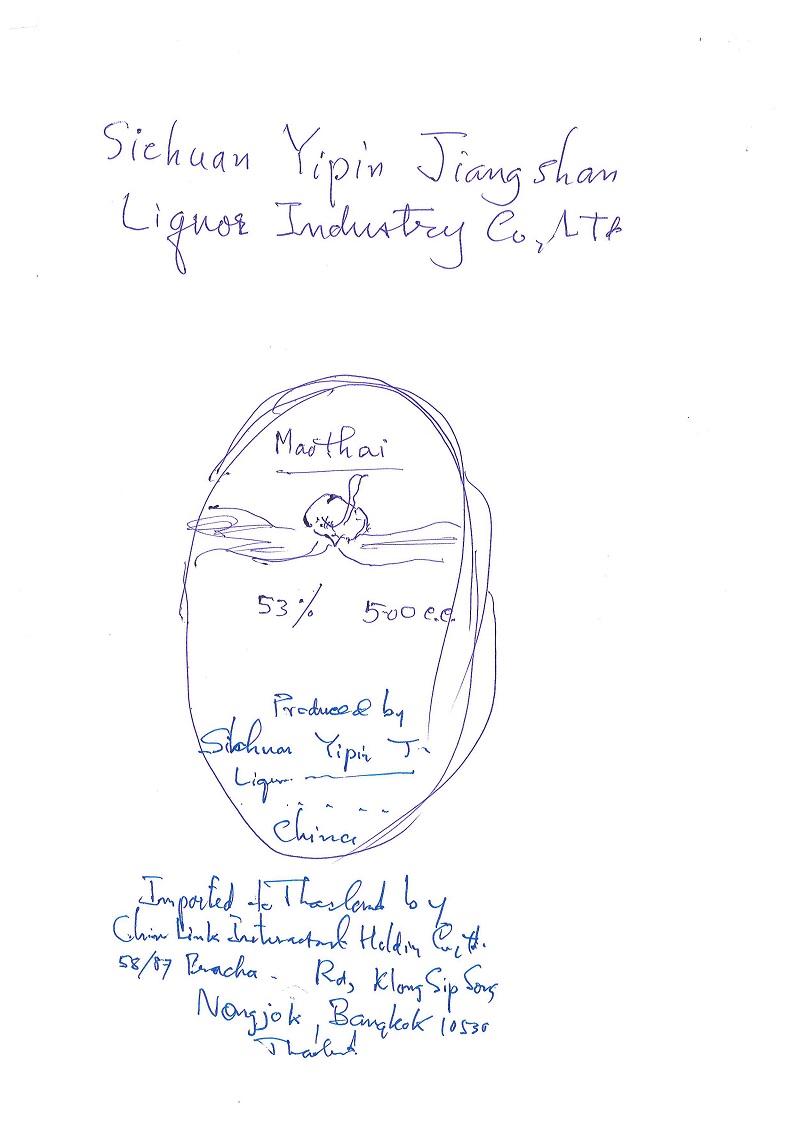 Sichuan Yipin Jiangshan
Liquor Industry Co., LTD
Maothai
53% 500 c.c.
Produced by
Sichuan Yipin J-
Liquor
China
Imported to Thailand by
Link Holding Co., Lt.
58/87 Pracha - Rd, Klong Sip Song
Nongjok, Bangkok 10530
Thailand